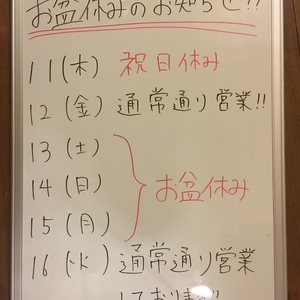 お盆休みのお知らせ!!
11(木) 祝日休み
12(金) 通常通り営業!!
13(土)
14(日) お盆休み
15(月)
16(火) 通常通り営業
しております!!